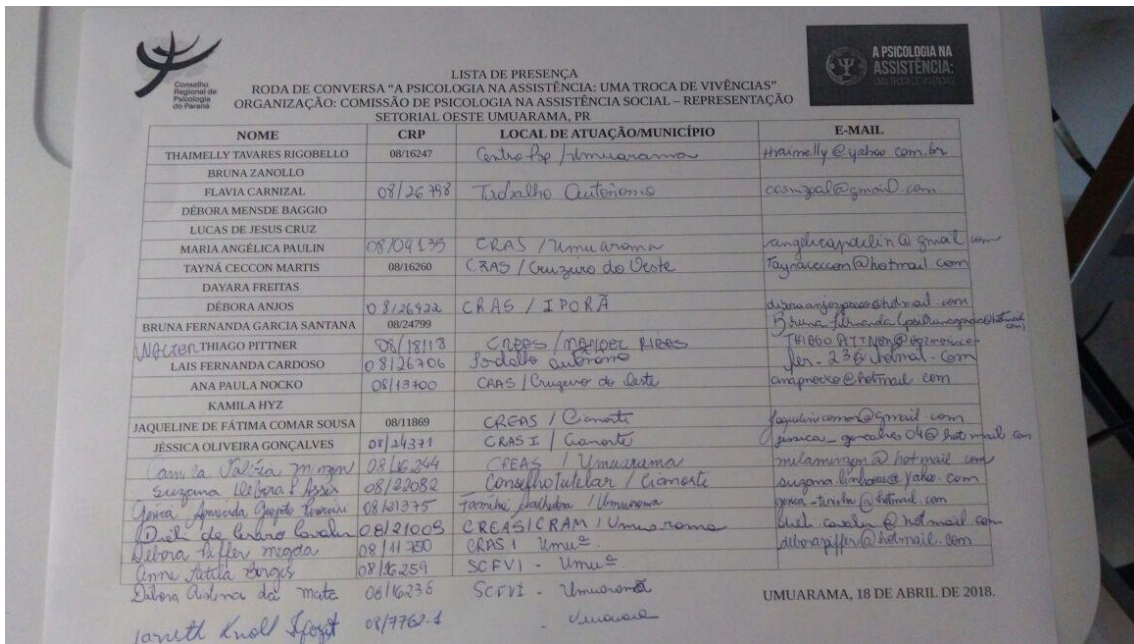 Conselho
Regional de
Psicologia
do Paraná
A PSICOLOGIA NA
ASSISTÊNCIA:
UMA TROCA DE VIVÊNCIAS
LISTA DE PRESENÇA
RODA DE CONVERSA “A PSICOLOGIA NA ASSISTÊNCIA: UMA TROCA DE VIVÊNCIAS”
ORGANIZAÇÃO: COMISSÃO DE PSICOLOGIA NA ASSISTÊNCIA SOCIAL – REPRESENTAÇÃO
SETORIAL OESTE UMUARAMA, PR
NOME CRP LOCAL DE ATUAÇÃO/MUNICÍPIO E-MAIL
THAIMELLY TAVARES RIGOBELLO 08/16247 Centro Pop / Umuarama thaimelly@yahoo.com.br
BRUNA ZANOLLO
FLAVIA CARNIZAL 08/26798 Trabalho Autônomo @gmail.com
DÉBORA MENSDE BAGGIO
LUCAS DE JESUS CRUZ
MARIA ANGÉLICA PAULIN 08/09135 CRAS / Umuarama @gmail.com
TAYNÁ CECCON MARTIS 08/16260 CRAS / Cruzeiro do Oeste taynaceccon@hotmail.com
DAYARA FREITAS
DÉBORA ANJOS 08/26422 CRAS / IPORÃ @hotmail.com
BRUNA FERNANDA GARCIA SANTANA 08/24799 Bruna Fernanda
WALTER THIAGO PITTNER 08/18118 CREAS / MANOEL RIBAS
LAIS FERNANDA CARDOSO 08/26706 autônomo
ANA PAULA NOCKO 08/13700 CRAS / Cruzeiro do Oeste anapnocko@hotmail.com
KAMILA HYZ
JAQUELINE DE FÁTIMA COMAR SOUSA 08/11869 CREAS / Cianorte jaquelinecomar@gmail.com
JÉSSICA OLIVEIRA GONÇALVES 08/24371 CRAS I / Cianorte jessica_goncalves04@hotmail.com
Camila Valéria Minzon 08/16244 CREAS / Umuarama milaminzon@hotmail.com
Suzana Débora Assis 08/22082 Conselho Tutelar / Cianorte @yahoo.com
Amanda 08/21375 Família Acolhedora / Umuarama @hotmail.com
08/21005 CREAS/CRAM / Umuarama @hotmail.com
Débora Piffer 08/11750 CRAS I Umu deborapiffer@hotmail.com
Anne Borges 08/16259 SCFVI - Umu
Débora da Mata 08/16236 SCFVI - Umuarama
UMUARAMA, 18 DE ABRIL DE 2018.
Knoll 08/7762-1 - Umuarama